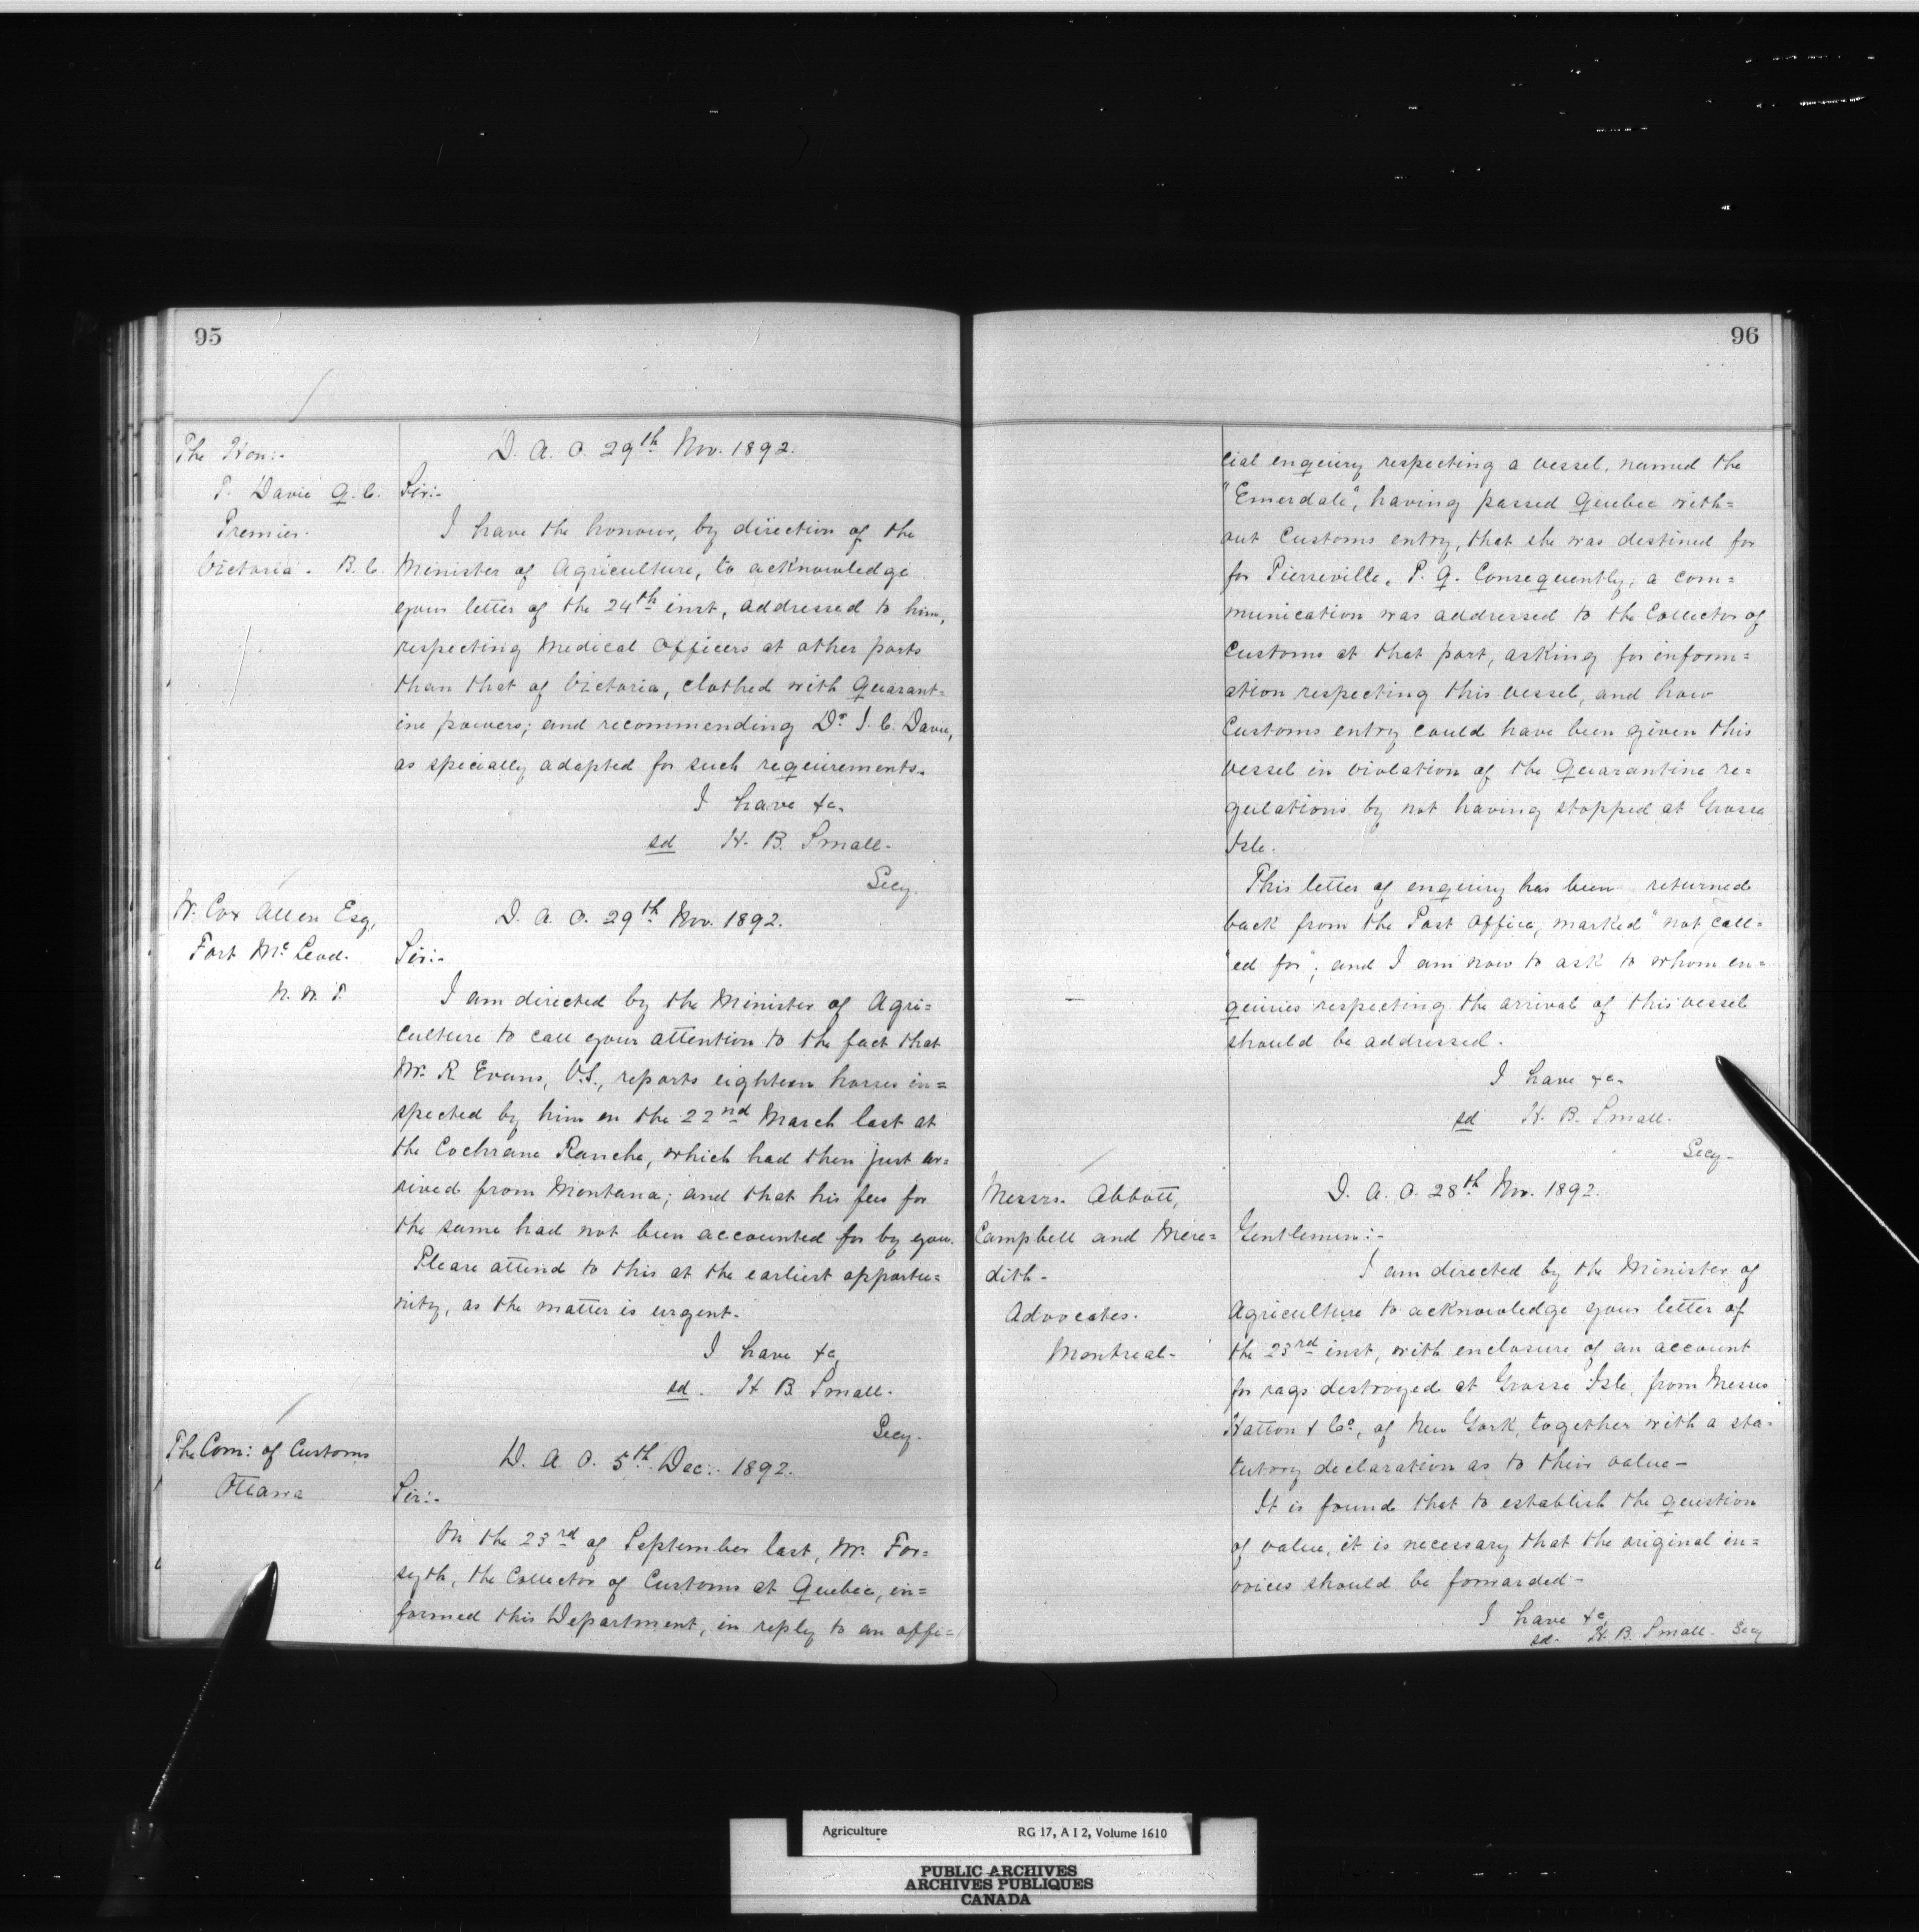 95
The Hon:-
T. Davie Q.C.
Premier.
Victoria. B.C.
D. A. O. 29th Nov. 1892.
Sir:-
I have the honour, by direction of the
Minister of Agriculture, to acknowledge
your letter of the 24th inst, addressed to him,
respecting Medical Officers at other ports
than that of Victoria, clothed with Quarant=
ine powers; and recommending Dr J. C. Davie,
as specially adapted for such requirements.
I have &c.
sd H. B. Small.
Secy.
W. Cox Allen Esq,
Fort McLeod.
N. W. T.
D. A. O. 29th Nov. 1892.
Sir:-
I am directed by the Minister of Agri=
culture to call your attention to the fact that
Mr. R Evans, V.S., reports eighteen horses in=
spected by him on the 22nd March last at
the Cochrane Ranche, which had then just ar=
rived from Montana; and that his fees for
the same had not been accounted for by you.
Please attend to this at the earliest opportu=
nity, as the matter is urgent.
I have &c,
sd. H B. Small.
Secy.
The Com: of Customs
Ottawa
D. A. O. 5th Dec:. 1892.
Sir:-
On the 23rd of September last, Mr. For=
syth, the Collector of Customs at Quebec, in=
formed this Department, in reply to an offi=
96
cial enquiry respecting a vessel, named the
"Emerdale", having passed Quebec with=
out Customs entry, that she was destined for
for Pierreville, P. Q. Consequently, a com=
munication was addressed to the Collector of
Customs at that port, asking for inform=
ation respecting this vessel, and how
Customs entry could have been given this
vessel in violation of the Quarantine re=
gulations by not having stopped at Grosse
Isle.
This letter of enquiry has been returned
back from the Post Office, marked "not call=
"ed for"; and I am now to ask to whom en=
quiries respecting the arrival of this vessel
should be addressed.
I have &c.
sd H. B. Small.
Secy-
Messrs. Abbott,
Campbell and Mere=
dith-
Advocates.
Montreal-
D. A. O. 28th Nov. 1892.
Gentlemen:-
I am directed by the Minister of
Agriculture to acknowledge your letter of
the 23rd inst, with enclosure of an account
for rags destroyed at Grosse Isle, from Messrs
Hatton & Co, of New York, together with a sta-
tutory declaration as to their value-
It is found that to establish the question
of value, it is necessary that the original in=
voices should be forwarded-
I have &c,
sd- H. B. Small- Secy
Agriculture RG 17, A I 2, Volume 1610
PUBLIC ARCHIVES
ARCHIVES PUBLIQUES
CANADA